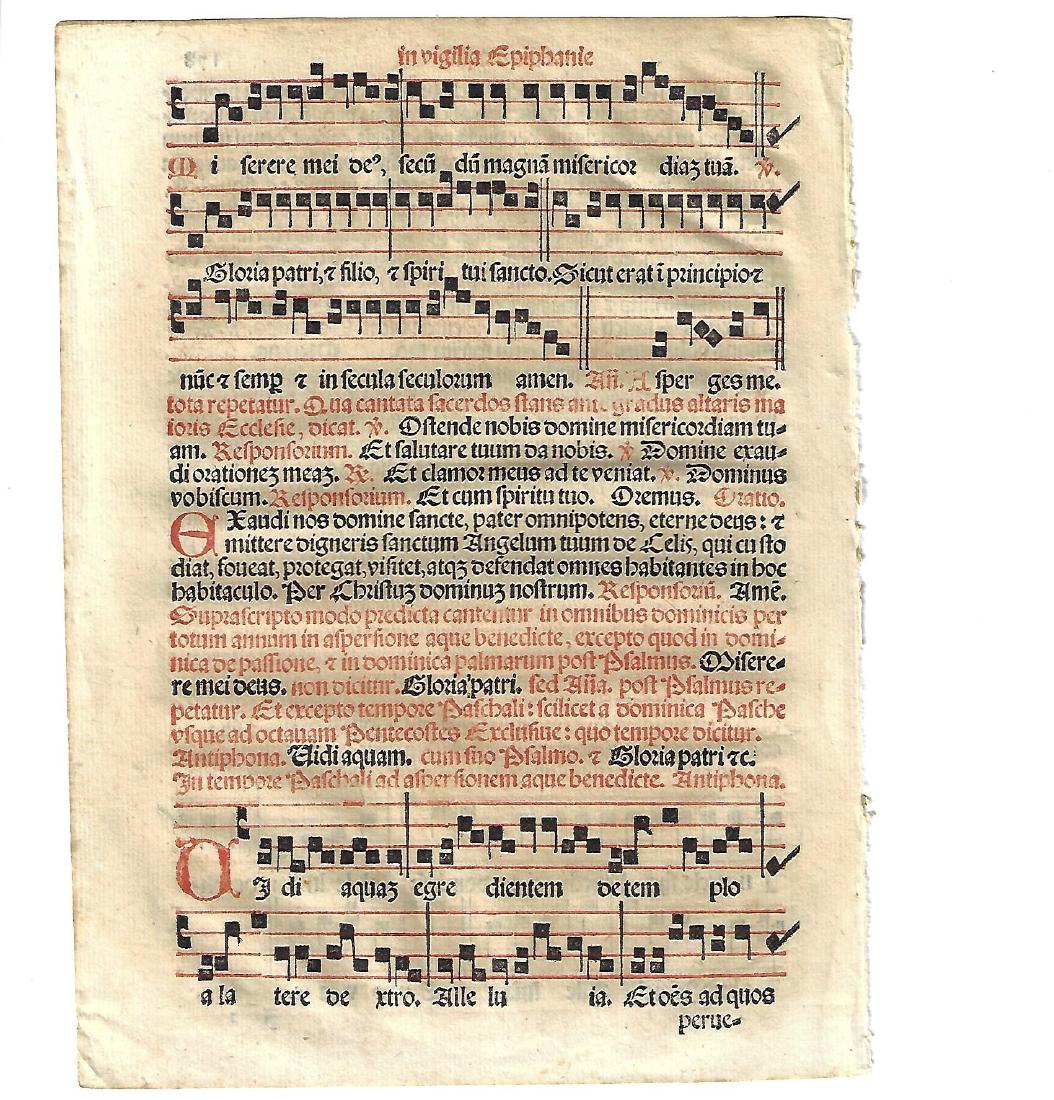 in vigilia Epiphanie
Mi serere mei de⁹, secū dū magnā misericor diaʒ tuā. ℣.
Gloria patri, ⁊ filio, ⁊ spiri tui sancto. Sicut erat ī principio ⁊
nūc ⁊ semꝑ ⁊ in secula seculorum amen. Añ. A sper ges me.
tota repetatur. Qua cantata sacerdos stans ante gradus altaris ma
ioris Ecclesie, dicat. ℣. Ostende nobis domine misericordiam tu-
am. Responsorium. Et salutare tuum da nobis. ℣ Domine exau-
di orationeʒ meaʒ. ℟. Et clamor meus ad te veniat. ℣. Dominus
vobiscum. Responsorium. Et cum spiritu tuo. Oremus. Oratio.
EXaudi nos domine sancte, pater omnipotens, eterne deus: ⁊
mittere digneris sanctum Angelum tuum de Celis, qui cu sto
diat, foueat, protegat, visitet, atqʒ defendat omnes habitantes in hoc
habitaculo. Per Christuʒ dominuʒ nostrum. Responsoriū. Amē.
Suprascripto modo predicta cantentur in omnibus dominicis per
totum annum in aspersione aque benedicte, excepto quod in domi-
nica de passione, ⁊ in dominica palmarum post Psalmus. Misere-
re mei deus. non dicitur. Gloria patri. sed Aña. post Psalmus re-
petatur. Et excepto tempore Paschali: scilicet a dominica Pasche
vsque ad octauam Pentecostes Exclusiue: quo tempore dicitur.
Antiphona. Vidi aquam. cum suo Psalmo. ⁊ Gloria patri ⁊c.
In tempore Paschali ad aspersionem aque benedicte. Antiphona.
VI di aquaʒ egre dientem de tem plo
a la tere de xtro. Alle lu ia. Et oēs ad quos
perue-